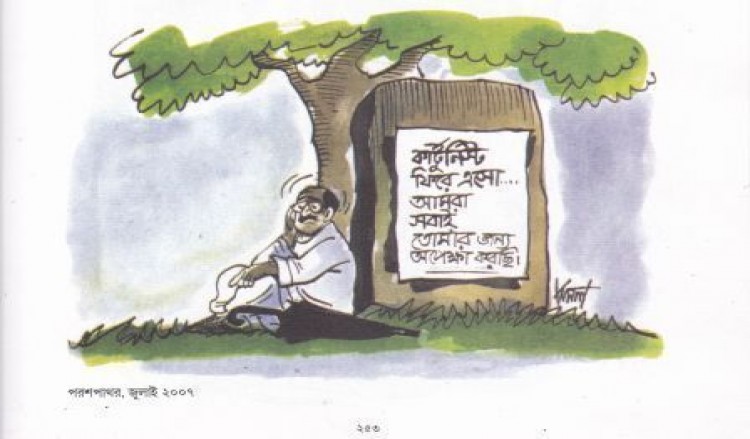 কার্টুনিস্ট
ফিরে এসো....
আমরা
সবাই
তোমার জন্য
অপেক্ষা করছি।
পরশপাথর, জুলাই ২০০৭
২৫৩